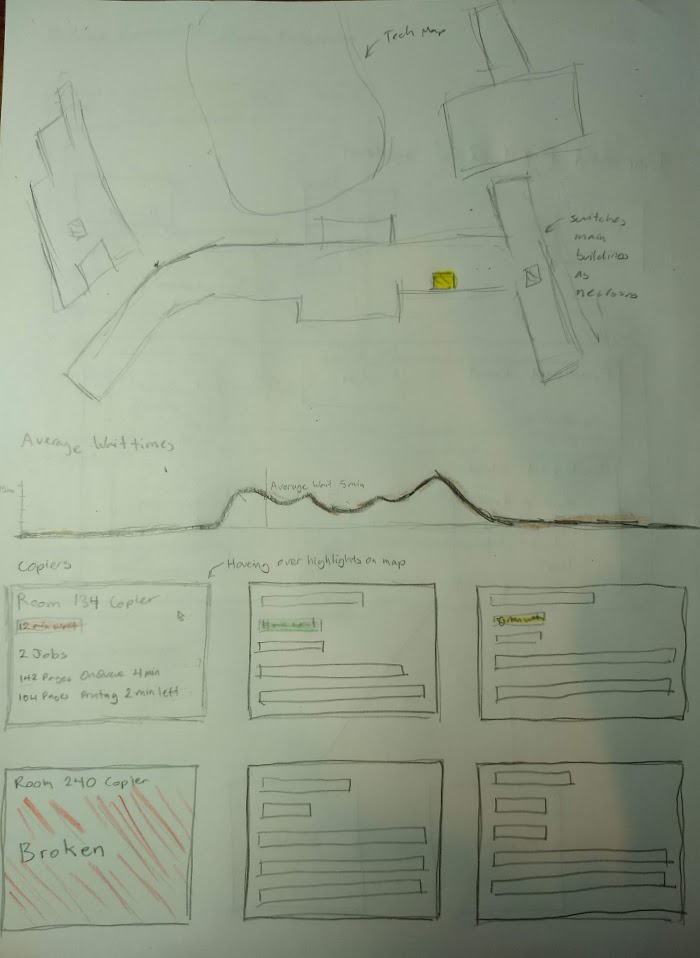 Tech Map
switches
main
buildings
as
Average Wait times
Average Wait 5min
Copiers
Hovering over highlights on map
Room 134 Copier
12 min wait
2 Jobs
142 Pages On Queue 4 min
104 Pages Printing 2 min left
Room 240 Copier
Broken